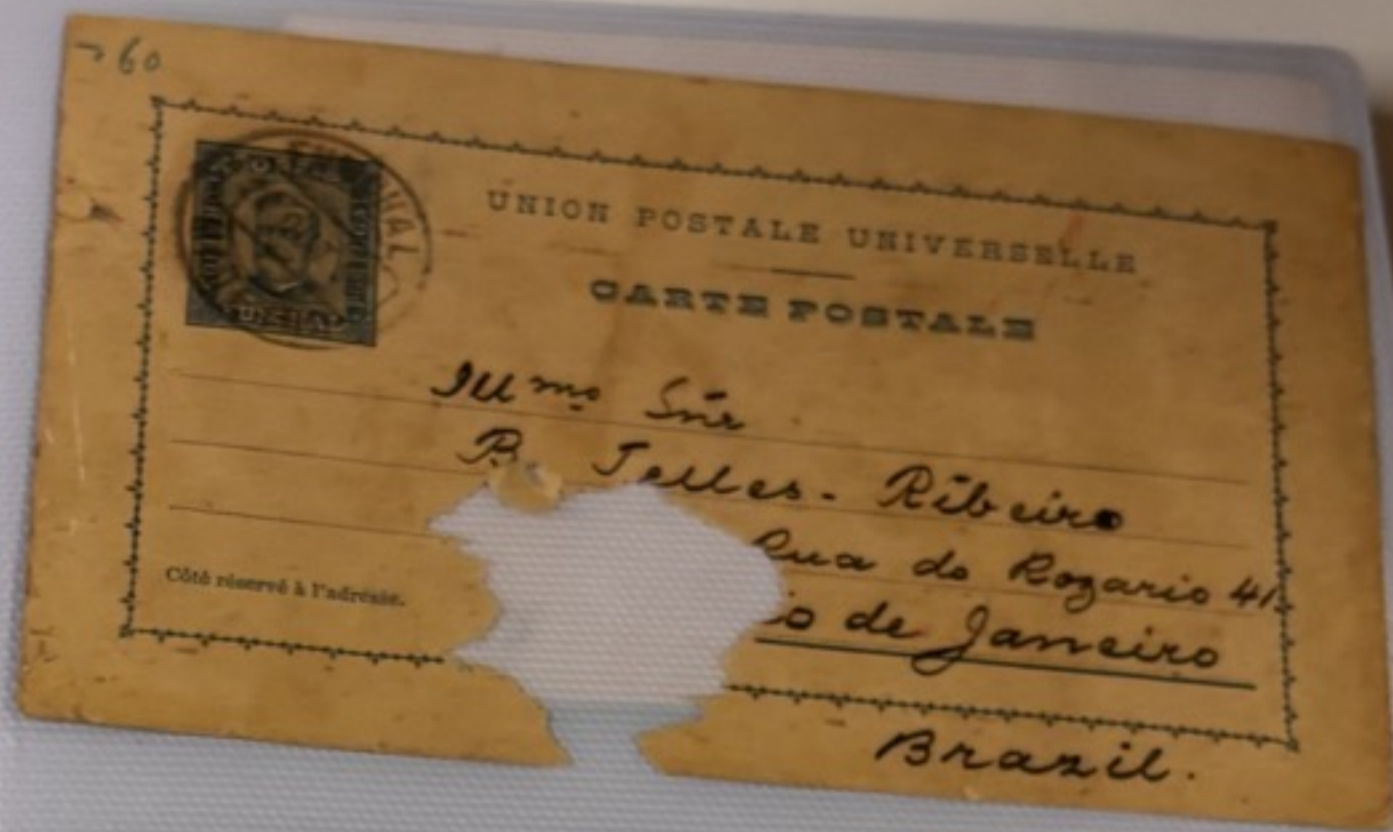 60
FUNCHAL
UNION POSTALE UNIVERSELLE
CARTE POSTALE
Illmo Snr
B. Telles - Ribeiro
Rua do Rozario 41
io de Janeiro
Côté réservé à l'adresse.
Brazil.